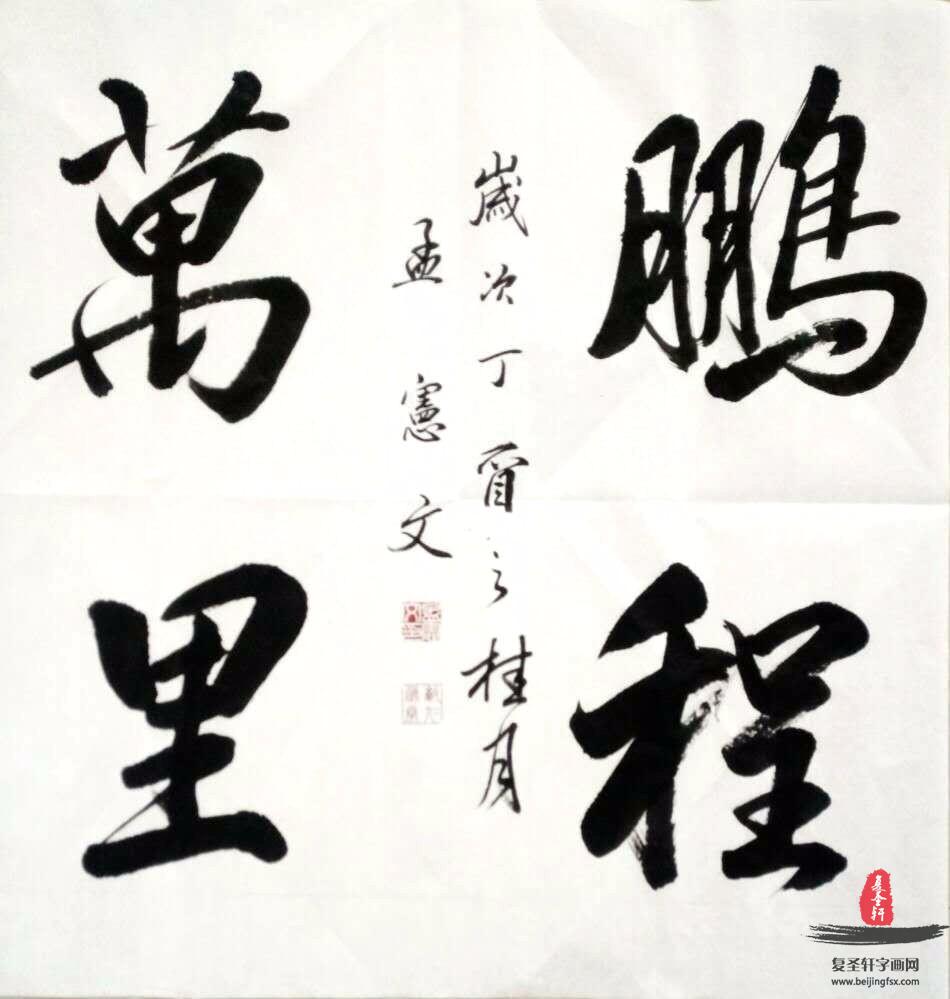 鵬程
萬里
歲次丁酉之桂月
孟憲文
复圣轩
复圣轩字画网
www.beijingfsx.com